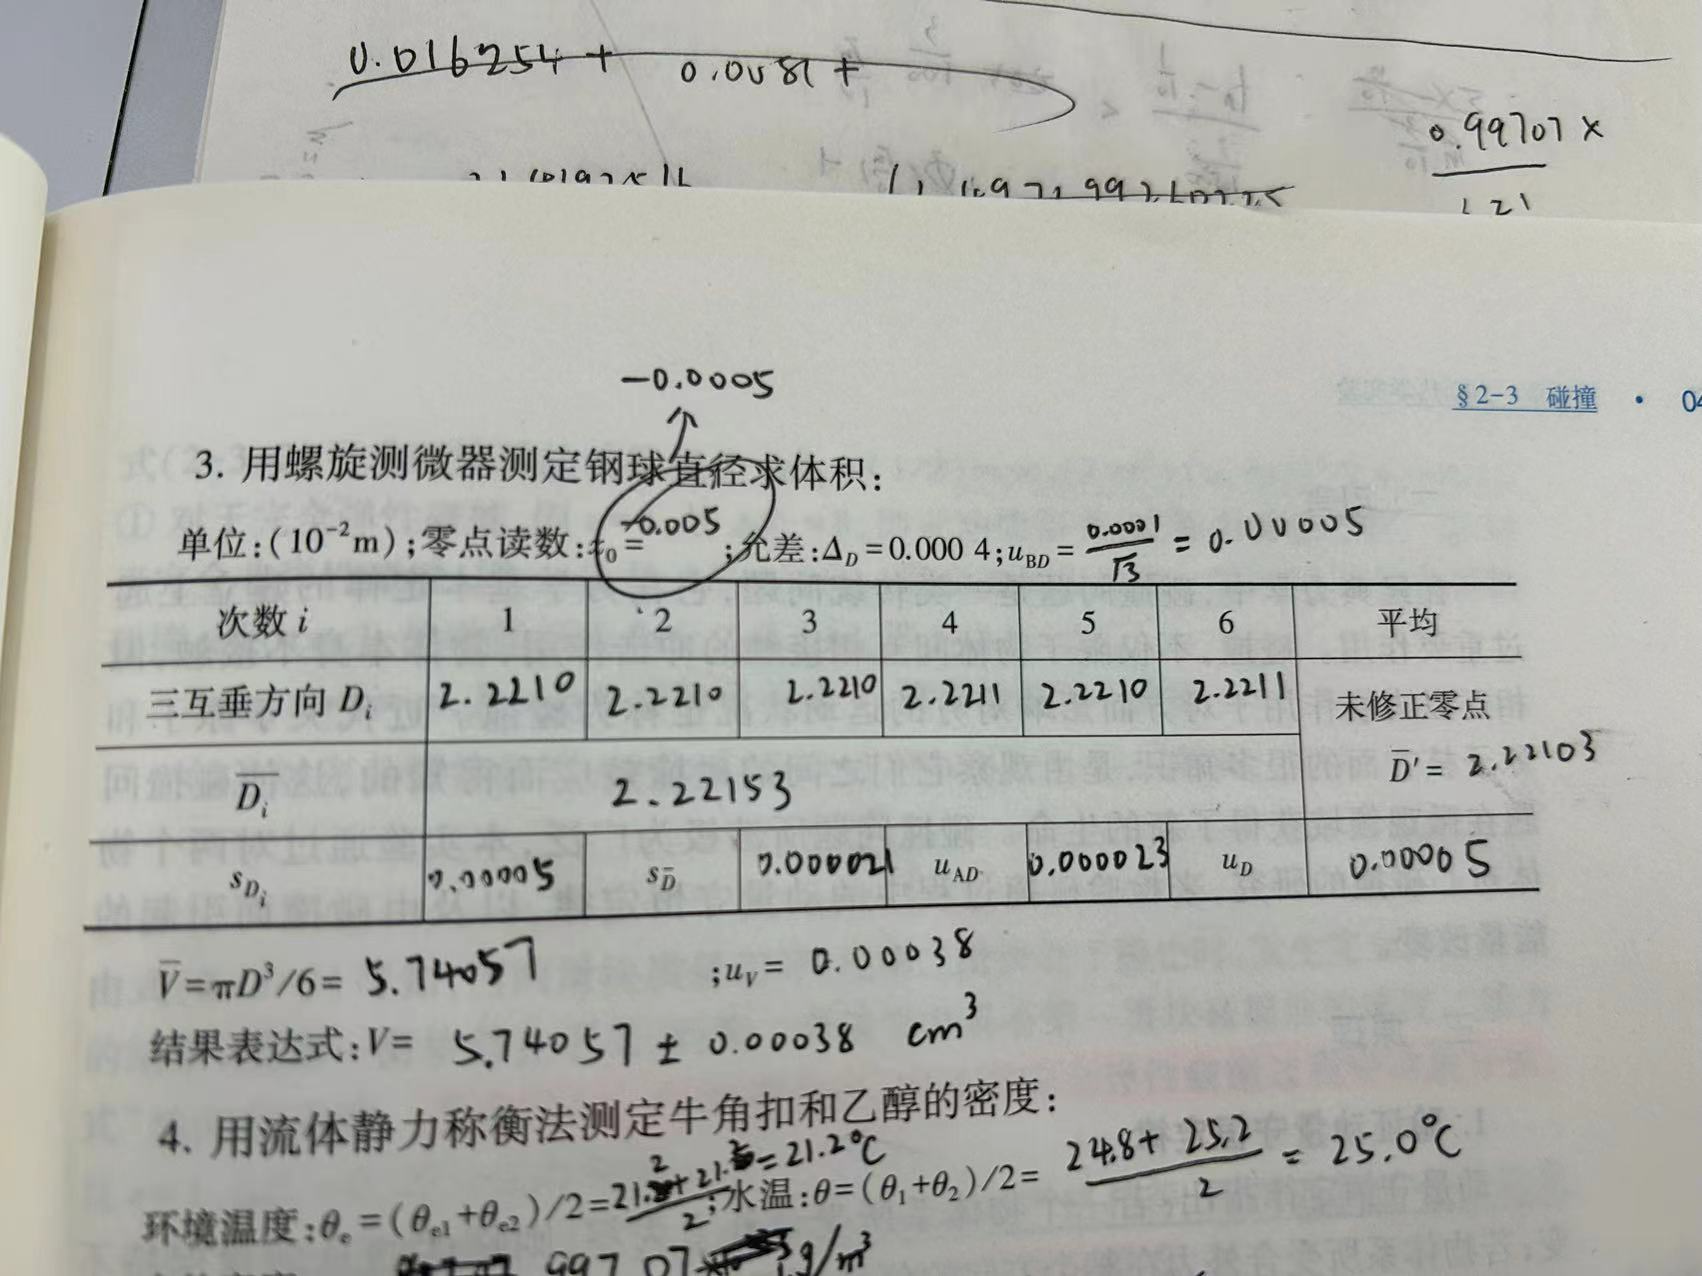 0.016254 + 0.0081 +
0.99707 ×
121
§2-3 碰撞 · 04
-0.0005
3. 用螺旋测微器测定钢球直径求体积:
单位:(10⁻²m);零点读数:x₀=-0.005;允差:Δ_D=0.000 4;u_BD=0.0001/√3=0.00005
次数 i 1 2 3 4 5 6 平均
三互垂方向 D_i 2.2210 2.2210 2.2210 2.2211 2.2210 2.2211 未修正零点
D̄_i 2.22153 D̄'= 2.22103
s_Di 0.00005 s_D̄ 0.000021 u_AD 0.000023 u_D 0.00005
V̄=πD³/6= 5.74057 ;u_V= 0.00038
结果表达式:V= 5.74057 ± 0.00038 cm³
4. 用流体静力称衡法测定牛角扣和乙醇的密度:
环境温度:θ_e=(θ_e1+θ_e2)/2= =21.2℃;水温:θ=(θ₁+θ₂)/2= (24.8+25.2)/2 = 25.0℃
997.07 g/m³